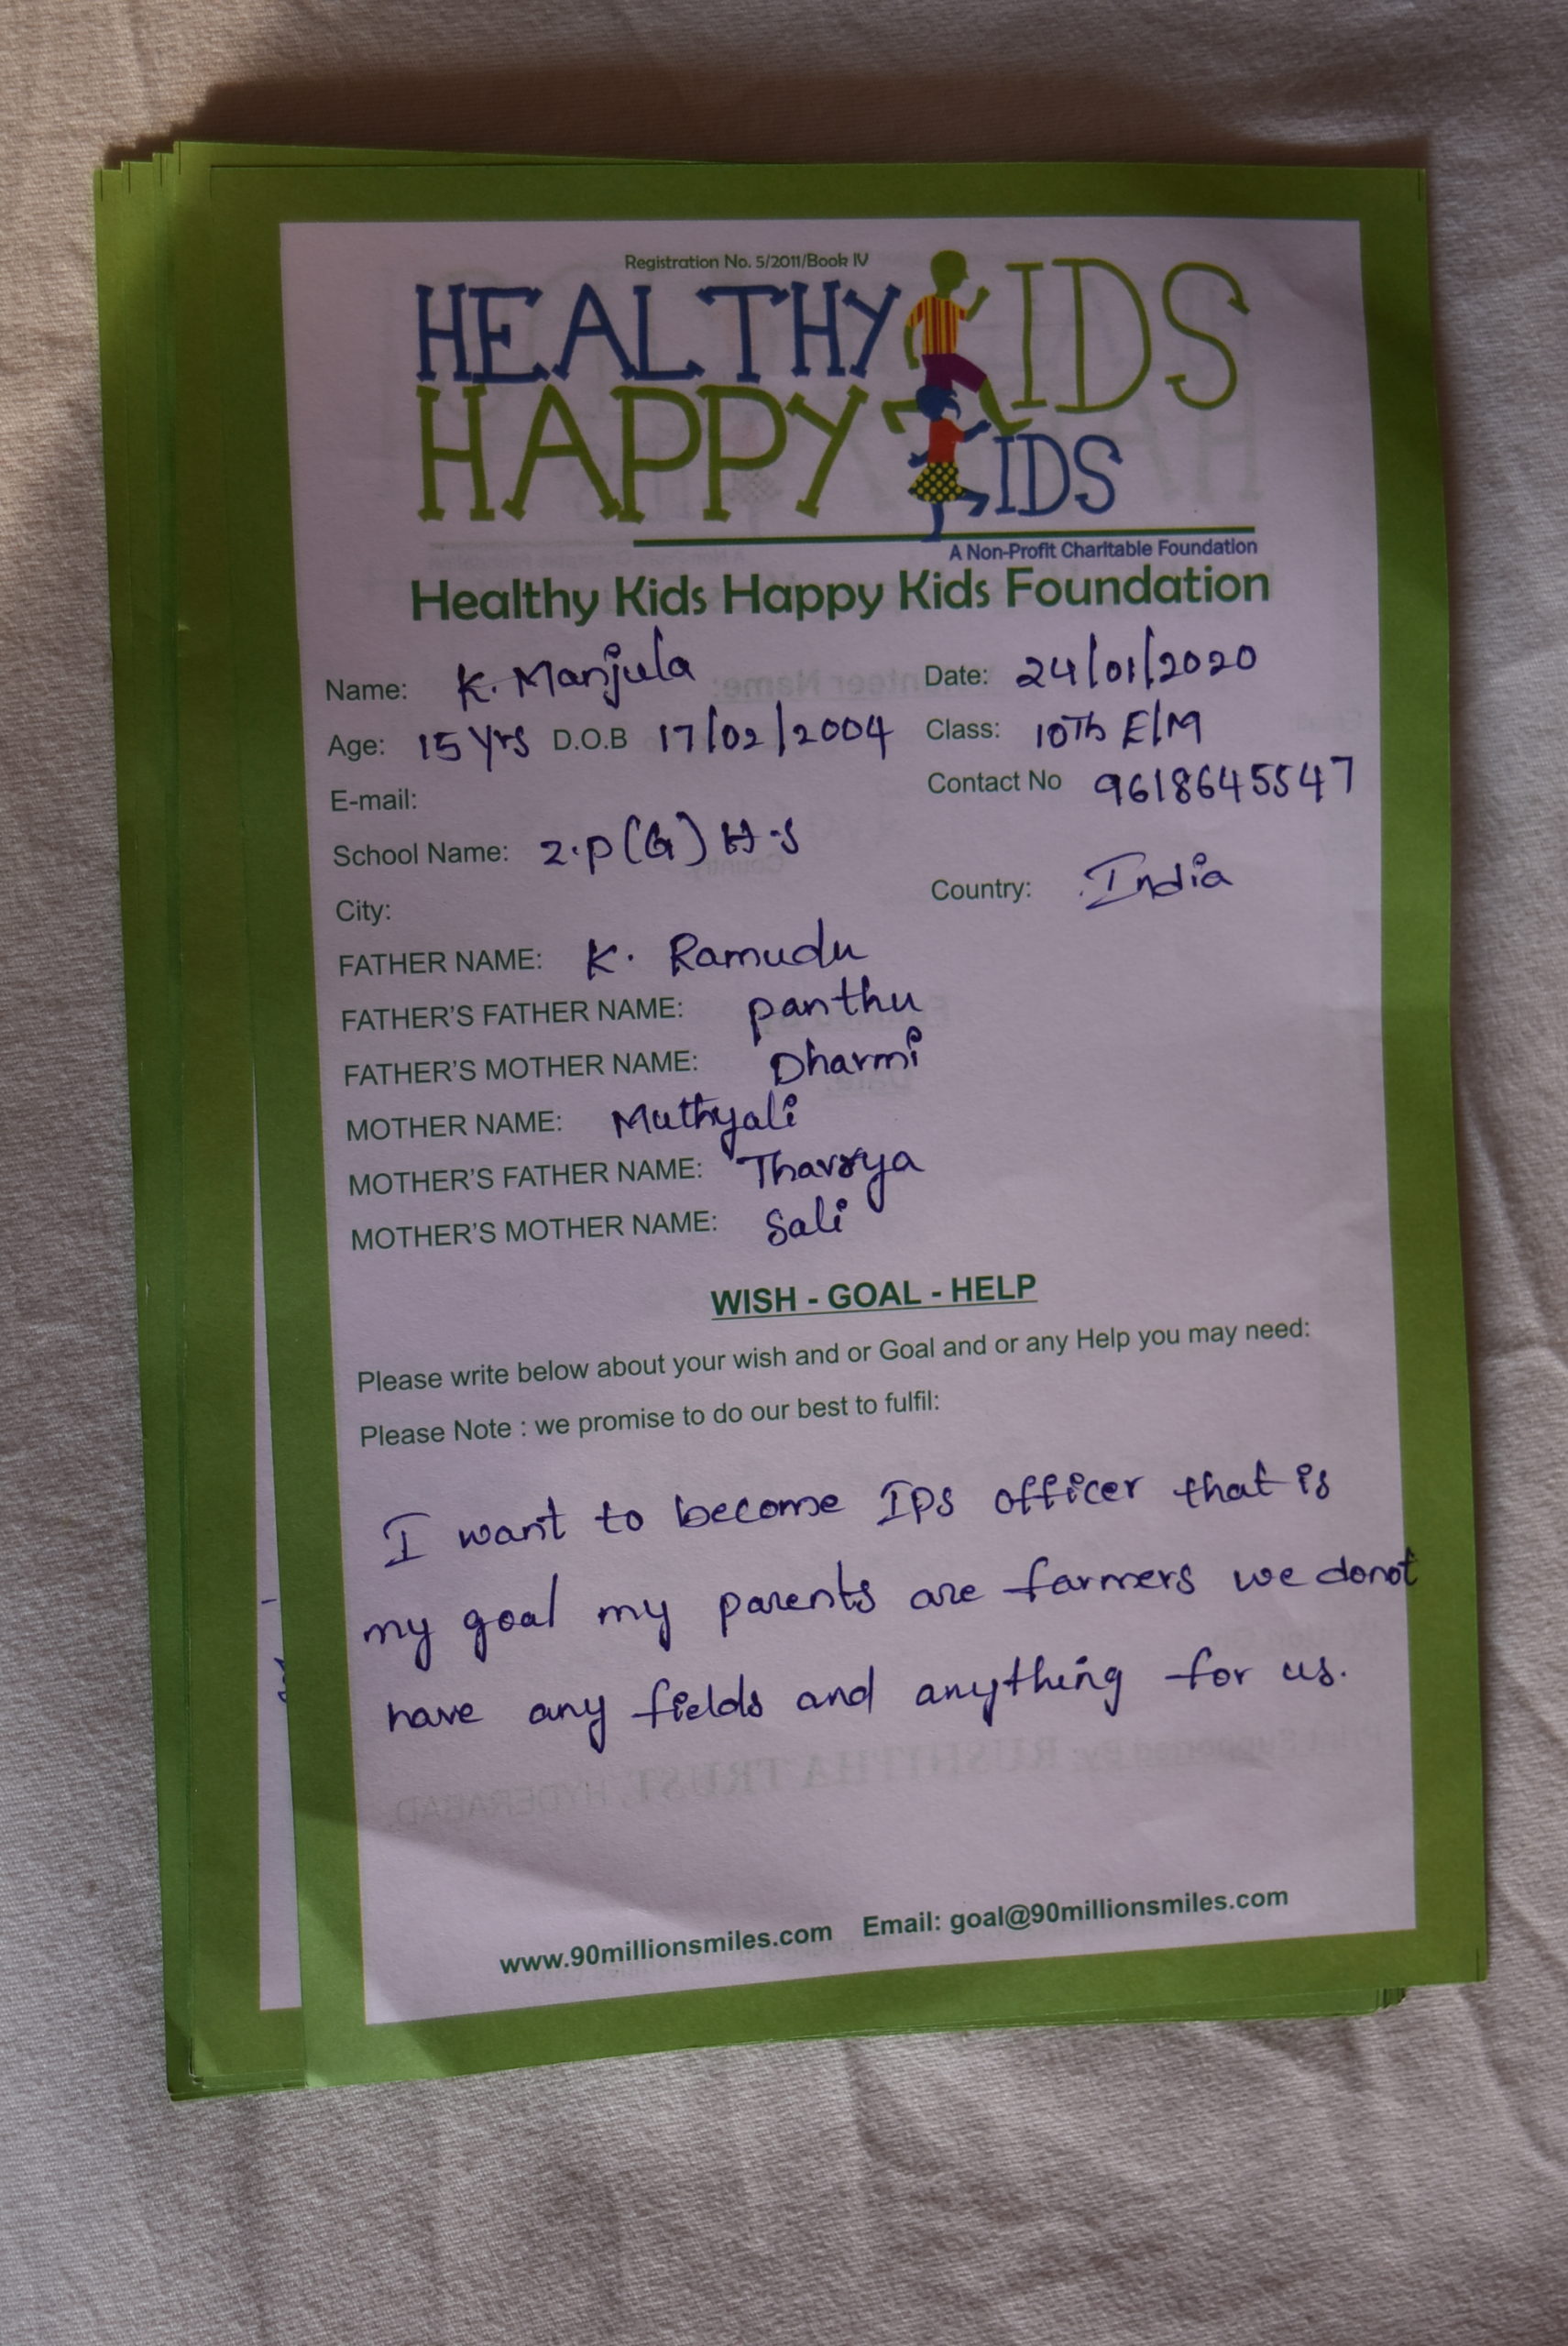 Registration No. 5/2011/Book IV
HEALTHY KIDS
HAPPY KIDS
A Non-Profit Charitable Foundation
Healthy Kids Happy Kids Foundation
Name: K. Manjula Date: 24/01/2020
Age: 15 Yrs D.O.B 17/02/2004 Class: 10Th E/M
E-mail: Contact No 9618645547
School Name: Z.P(G) H.S
City: Country: India
FATHER NAME: K. Ramudu
FATHER'S FATHER NAME: panthu
FATHER'S MOTHER NAME: Dharmi
MOTHER NAME: Muthyali
MOTHER'S FATHER NAME:
MOTHER'S MOTHER NAME: Sali
WISH - GOAL - HELP
Please write below about your wish and or Goal and or any Help you may need:
Please Note : we promise to do our best to fulfil:
I want to become IPS officer that is
my goal my parents are farmers we donot
have any fields and anything for us.
www.90millionsmiles.com Email: goal@90millionsmiles.com